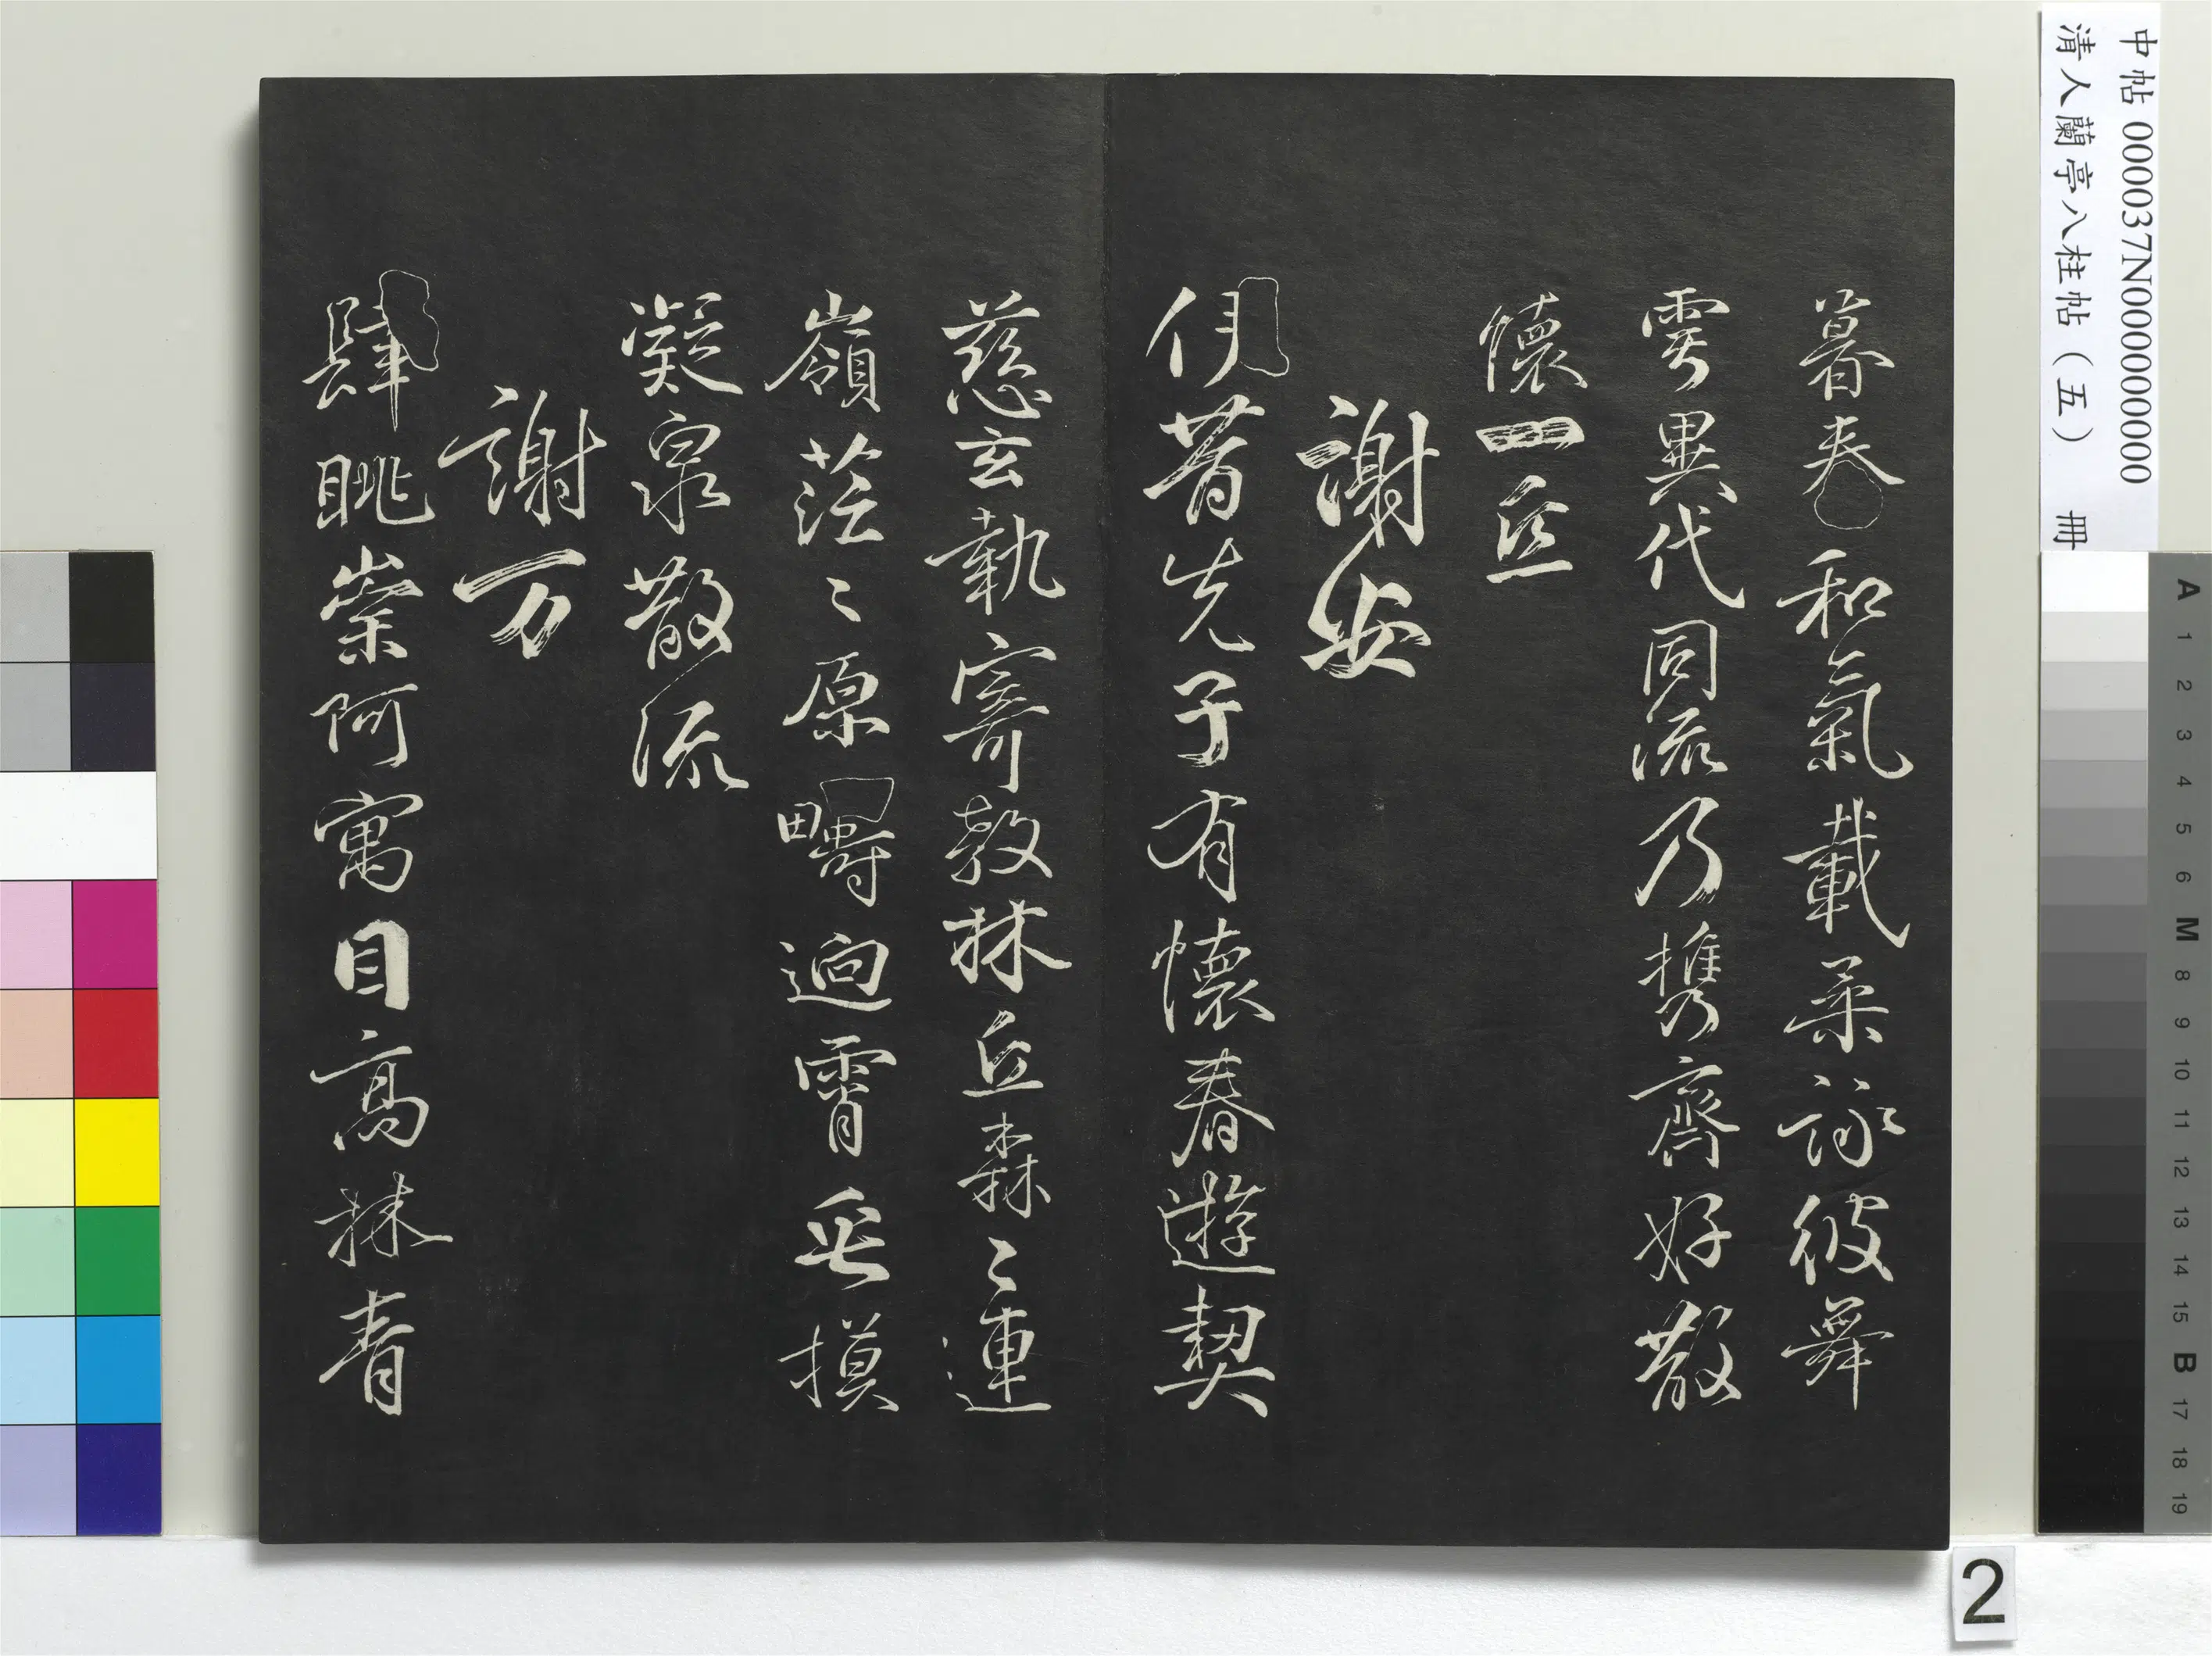 中帖 000037N000000000
清人蘭亭八柱帖（五） 冊
暮春和氣載柔詠彼舞
雩異代同流乃携齊好散
懷一丘
謝安
伊昔先子有懷春遊契
慈玄執寄敖林丘森〻連
嶺茫〻原疇逈霄垂摸
凝泉散流
謝万
肆眺崇阿寓目高林青
A 1 2 3 4 5 6 M 8 9 10 11 12 13 14 15 B 17 18 19
2